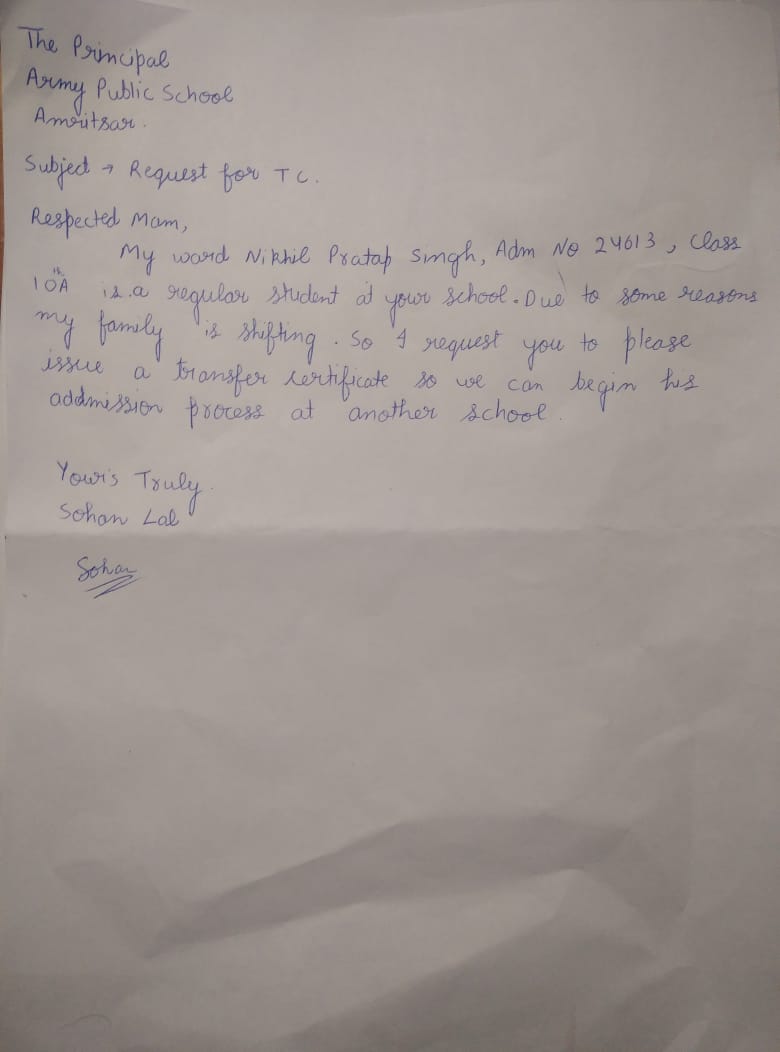 The Principal
Army Public School
Amritsar.
Subjed → Request for TC.
Respected Mam,
My ward Nikhil Pratap Singh, Adm No 24613, Class
10th A is a regular student at your school. Due to some reasons
my family is shifting. So I request you to please
issue a transfer certificate so we can begin his
addmission process at another school.
Your's Truly.
Sohan Lal
Sohan